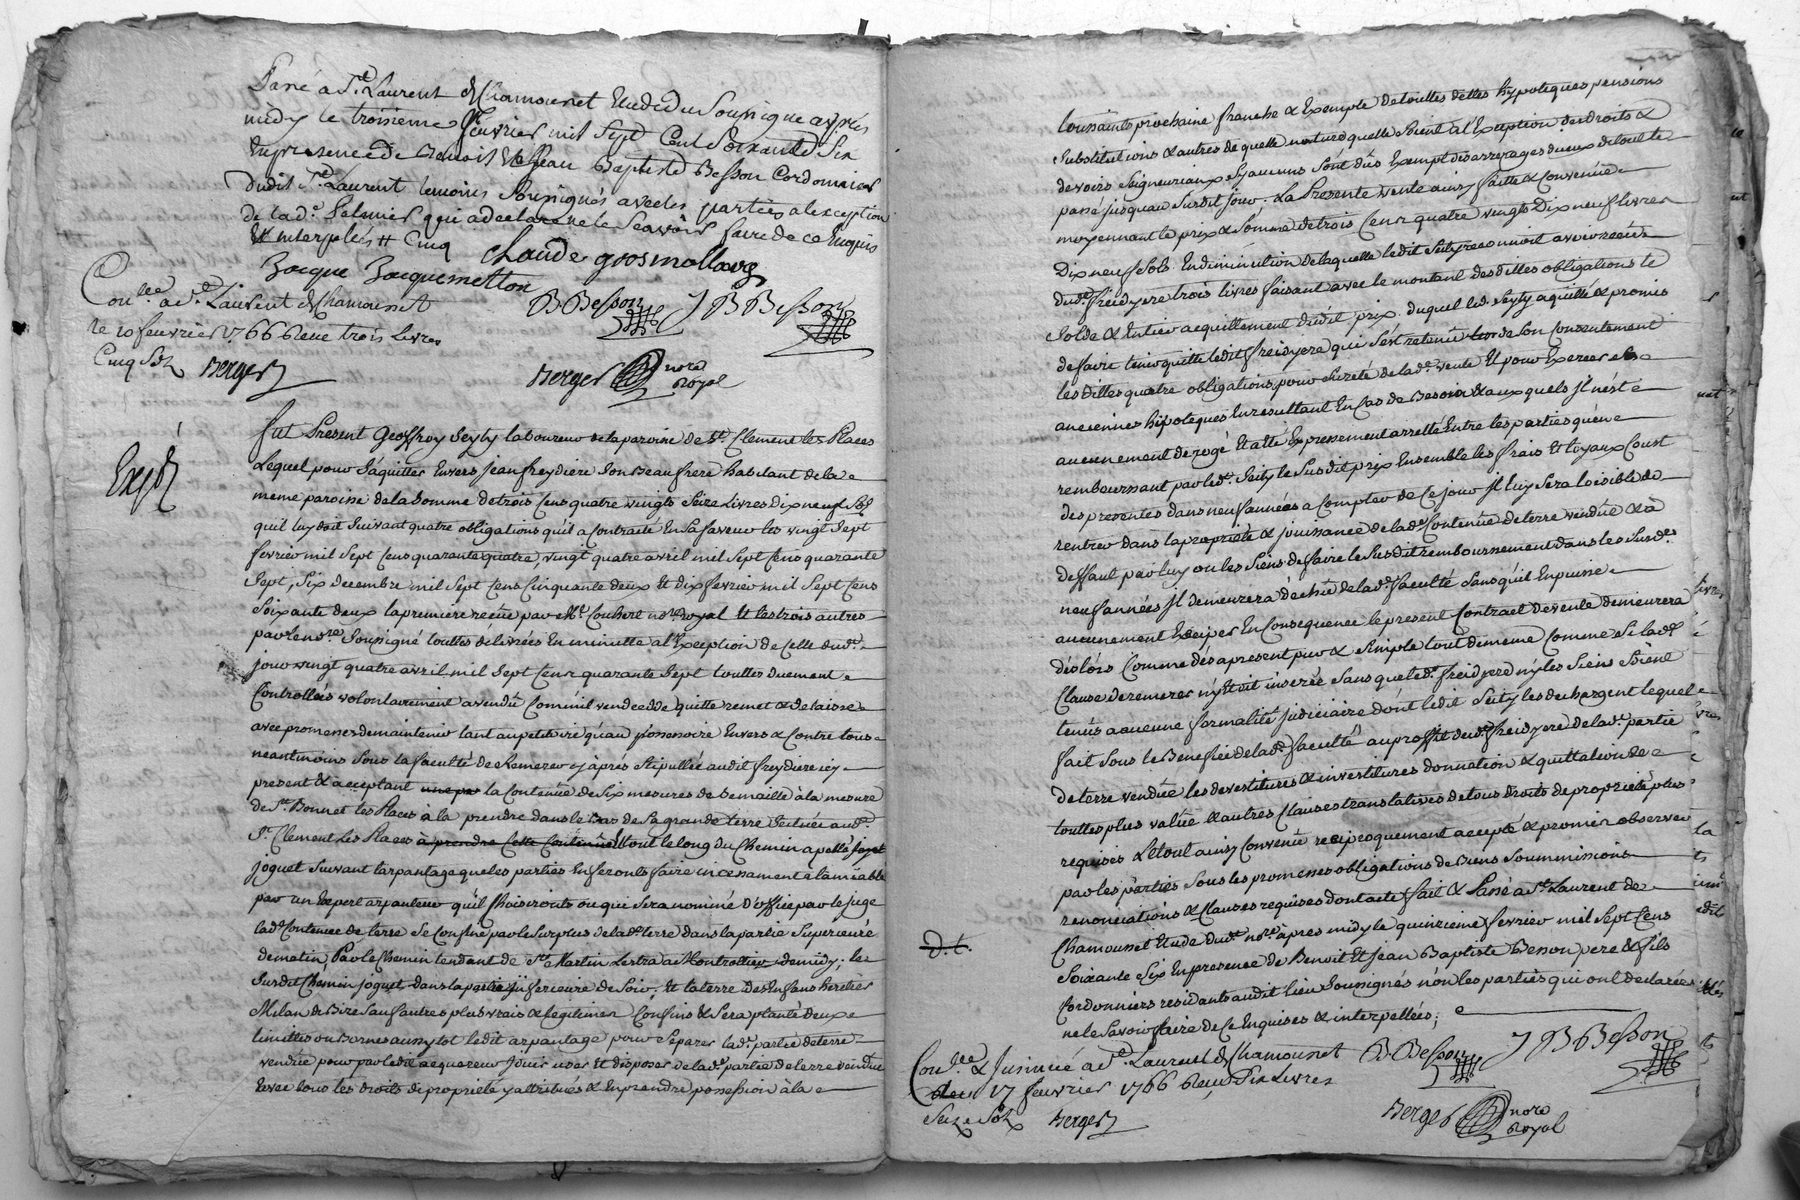 Passé à St. Laurent de Chamousset Etude du Soussigné après
midy le troisieme fevrier mil Sept Cent Soixante Six
En presence de Benoit et Jean Baptiste Besson Cordonnier
dudit St. Laurent temoins soussignés avec les parties a lexception
de lad. qui a declaré ne le Scavoir faire de ce Enquis
Et interpelés cinq
Claude grosmollard
Jacque Jacquemetton
BBesson JBBesson
Conlée a St. Laurent de Chamousset
le 10 fevrier 1766 Receu trois Livres
Cinq Sols Berger
Berger nore Royal
Expdé
fut Present Geoffroy Seyty laboureur de la paroisse de St. Clement les Places
Lequel pour S'aquitter Envers jean freydiere Son Beau frere habitant de la
meme paroisse de la Somme de trois Cens quatre vingts Seize Livres Dix neuf Sols
quil luy doit Suivant quatre obligations quil a Contracté En Sa faveur les vingt Sept
fevrier mil Sept Cens quarante quatre, vingt quatre avril mil Sept Cens quarante
Sept, Six decembre mil Sept Cens Cinquante deux & dix fevrier mil Sept Cens
Soixante deux la premiere receüe par Me. nore. royal Et les trois autres
par le nore. Soussigné touttes délivrées En minutte a l'Exception de Celle dud.
jour vingt quatre avril mil Sept Cens quarante Sept touttes duement
Controllées volontairement a vendû Comm'il vend cedde quitte remet & delaisse
avec promesses de maintenir tant au petitoire qu'au possessoire Envers & Contre tous
neantmoins Sous la faculté de Remerer cy après Stipullée audit freydiere icy
present & acceptant la Contenüe de Six mesures de Semaille à la mesure
de St. Bonnet les Places à la prendre dans le Bas de Sa grande terre Scituée aud.
St. Clement Les Places à prendre Cette Contenüe Et tout le long du Chemin apellé
joguet Suivant larpantage que les parties En feront faire incessament à lamiable
par un Expert arpanteur qu'il Choisiront ou qui Sera nommé D'office par le juge
lad. Contenüe de terre Se Confine par le Surplus de lad. terre dans la partie Superieure
de matin, Par le Chemin tendant de St. Martin Lestra a Montrottier de midy; le
Susdit Chemin joguet dans la partie inferieure de Soir, Et la terre des Enfans heritier
Milan de Bize Sauf autres plus vrais & legitimes Confins & Sera planté deux
limittes ou Bornes aussytot ledit arpantage pour Séparer lad. partie de terre
vendüe pour par ledit acquereur jouir user Et disposer de lad. partie de terre vendüe
avec tous les droits de proprieté y attribués & En prendre possession à la
toussaints prochaine franche & Exempte de touttes dettes hypoteques pensions
Substitutions & autres de quelle nature quelle Soient a l'Exception des droits &
devoirs Seigneuriaux Sy aucuns Sont dûs Exempt des arrerages diceux de tout le
passé jusquau Susdit jour. La Presente vente ainsy faitte & Convenüe
moyennant le prix & Somme de trois Cens quatre vingts Dix neuf livres
Dix neuf Sols. En diminution de laquelle ledit Seity reconnoit avoir receu
dud. freidyere trois livres faisant avec le montant des dittes obligations le
Solde & Entier acquittement dudit prix duquel led. Seyty a quitté & promis
de faire tenir quitte ledit freidyere qui S'est retenû de Son Consentement
les dittes quatre obligations pour Sureté de lad. vente Et pour Exercer Ses
anciennes hipoteques En resultant En Cas de Besoin & aux quels jl n'est
aucunement derogé Et a été Expressement arretté Entre les parties qu'en
remboursant par led. Seity le Susdit prix Ensemble les frais & loyaux Coust
des presentes dans neuf années a Compter de Ce jour jl luy Sera loisible de
rentrer dans la propriété & jouissance de lad. Contenüe de terre vendüe & à
deffaut par luy ou les Siens de faire le Susdit remboursement dans les Susd.
neuf années jl demeurera déchû de lad. faculté Sans qu'il En puisse
aucunement Exciper En Consequence le present Contract de vente demeurera
dés lors Comme dés apresent pur & Simple tout de meme Comme Si lad.
Clause de remerer n'y étoit inserée Sans que led. freidyere ny les Siens Soient
tenûs a aucune formalité judiciaire dont ledit Seity les decharge lequel
fait Sous le Benefice de lad. faculté au profit dud. freidyere de lad. partie
de terre vendüe les devestitures & investitures donnation & quittation de
touttes plus value & autres Clauses translatives de tous droits de propriété plus
requises Le tout ainsy Convenû reciproquement accepté & promis observer
par les parties Sous les promesses obligations de Biens Soummissions
renonciations & Clauses requises dont acte fait & Passé a St. Laurent de
Chamousset Etude dud. nore. après midy le quinzieme fevrier mil Sept Cens
Soixante Six En presence de Benoit Et jean Baptiste Besson pere & fils
Cordonniers residants audit lieu Soussignés non les parties qui ont declarées
ne le Savoir faire de Ce Enquises & interpellées;
D.t.
BBesson JBBesson
Conlée & Insinué a St. Laurent de Chamousset
17 fevrier 1766 Receu Six Livres
Seize Sols Berger
Berger nore Royal